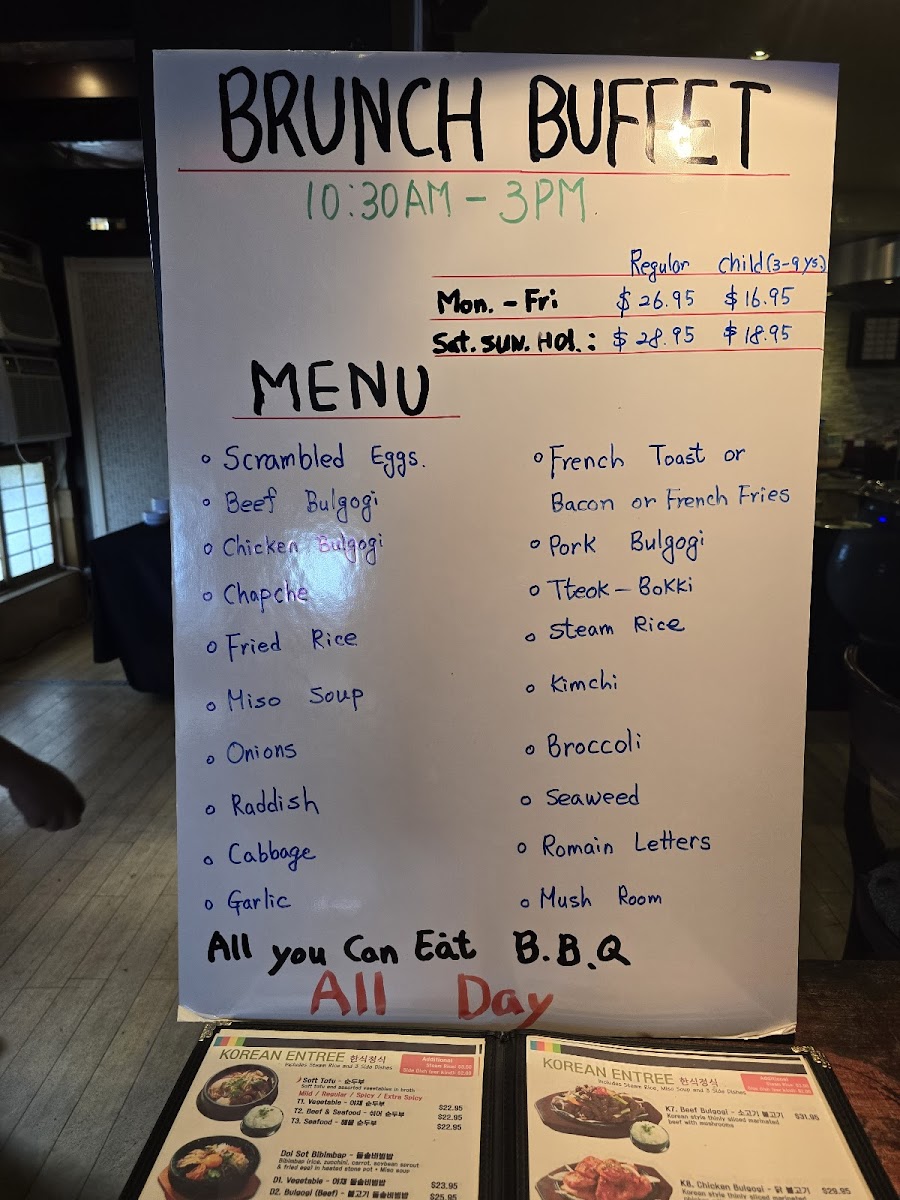 BRUNCH BUFFET
10:30AM - 3PM
Regular Child (3-9 ys.)
Mon. - Fri $26.95 $16.95
Sat. SUN. HOl.: $28.95 $18.95
MENU
Scrambled Eggs.
Beef Bulgogi
Chicken Bulgogi
Chapche
Fried Rice
Miso Soup
Onions
Raddish
Cabbage
Garlic
French Toast or
Bacon or French Fries
Pork Bulgogi
Tteok-Bokki
Steam Rice
Kimchi
Broccoli
Seaweed
Romain Letters
Mush Room
All you Can Eat B.B.Q
All Day
KOREAN ENTREE 한식정식
Includes Steam Rice and 3 Side Dishes
Additional
Steam Rice
Side Dish
Soft Tofu - 순두부
Soft tofu and assorted vegetables in broth
Mild / Regular / Spicy / Extra Spicy
T1. Vegetable - 야채 순두부 $22.95
T2. Beef & Seafood - 섞어 순두부 $22.95
T3. Seafood - 해물 순두부 $22.95
Dol Sot Bibimbap - 돌솥비빔밥
Bibimbap (rice, zucchini, carrot, soybean sprout
& fried egg) in heated stone pot + Miso soup
D1. Vegetable - 야채 돌솥비빔밥 $23.95
D2. Bulgogi (Beef) - 불고기 돌솥비빔밥 $25.95
KOREAN ENTREE 한식정식
Includes Steam Rice, Miso Soup and 3 Side Dishes
Additional
Steam Rice
K7. Beef Bulgogi - 소고기 불고기 $31.95
Korean style thinly sliced marinated
beef with mushrooms
K8. Chicken Bulgogi - 닭 불고기 $29.95
Korean style thinly sliced marinated